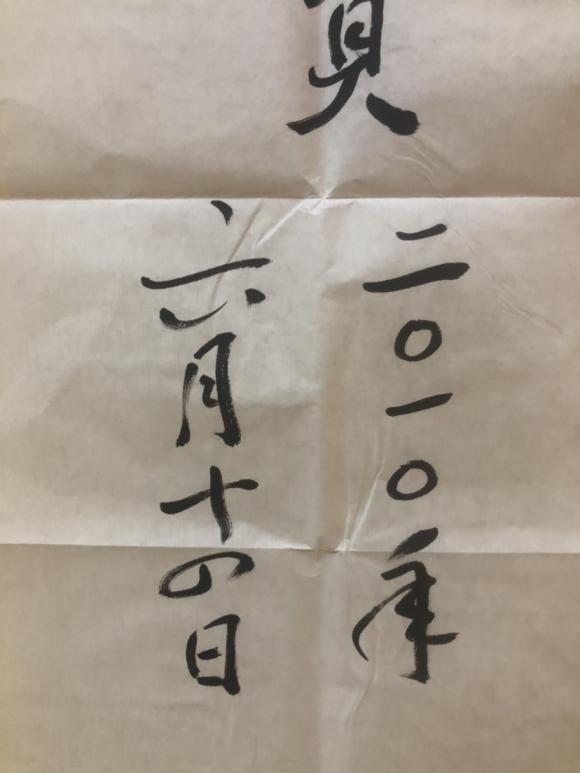 二〇一〇年
六月十四日